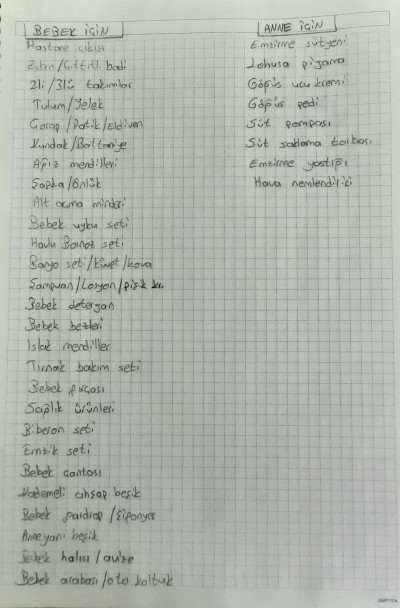 BEBEK İÇİN
Hastane çıkışı
Zıbın/Çıtçıtlı badi
2li/3lü takımlar
Tulum/Yelek
Çorap/Patik/Eldiven
Kundak/Battaniye
Ağız mendilleri
Şapka/Önlük
Alt açma minderi
Bebek uyku seti
Havlu Bornoz seti
Banyo seti/küvet/kova
Şampuan/Losyon/pişik kr.
Bebek deterjan
Bebek bezleri
Islak mendiller
Tırnak bakım seti
Bebek fırçası
Sağlık ürünleri
Biberon seti
Emzik seti
Bebek çantası
Kademeli ahşap beşik
Bebek gardrop/şifonyer
Anneyanı beşik
Bebek halısı/avize
Bebek arabası/oto koltuk
ANNE İÇİN
Emzirme sütyeni
Lohusa pijama
Göğüs ucu kremi
Göğüs pedi
Süt pompası
Süt saklama torbası
Emzirme yastığı
Hava nemlendirici